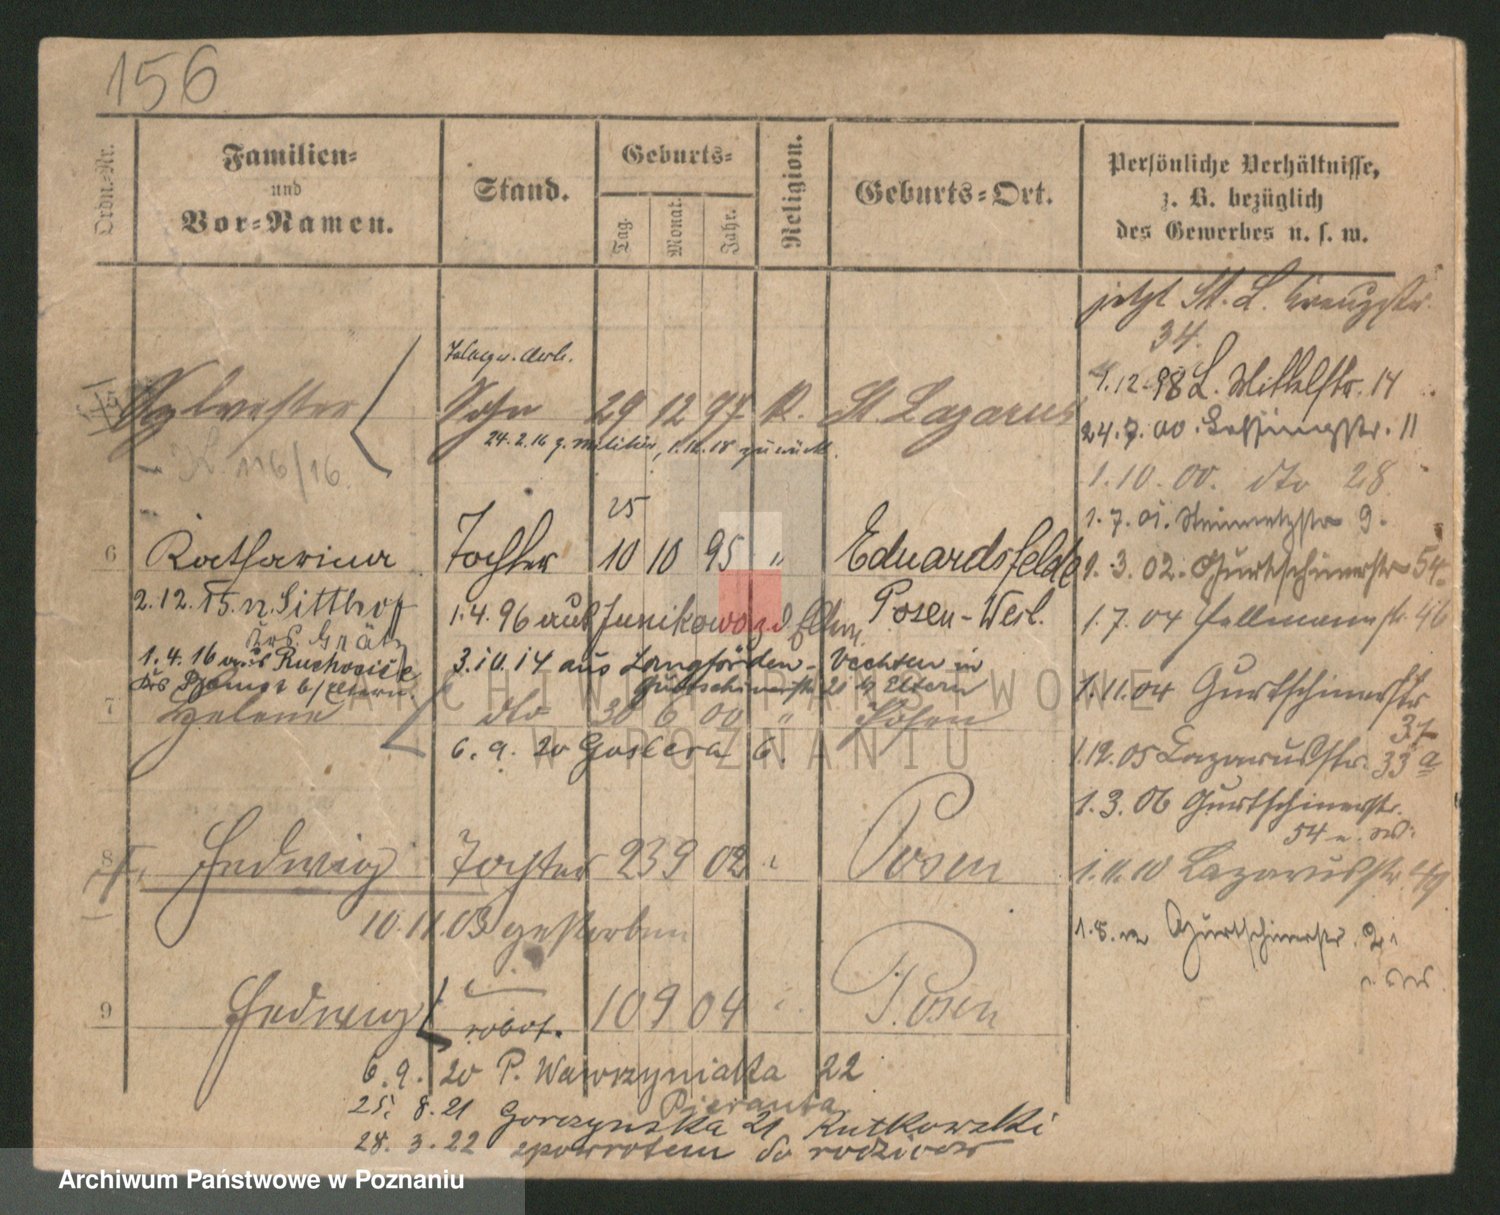 156
Ordn.-Nr.
Familien-
und
Vor-Namen.
Stand.
Geburts-
Tag.
Monat.
Jahr.
Religion.
Geburts-Ort.
Persönliche Verhältnisse,
z. B. bezüglich
des Gewerbes u. s. w.
jetzt St. L. Kreuzstr.
34.
12.98 L. Mittelstr. 14
Sylvester Sohn 29 12 97 K. St Lazarus
24.2.16 z. Militär, zurück.
24.7.00. Lessingstr. 11
116/16.
1.10.00. dto 28
1.7.01. Steinmetzstr 9.
25
6 Katharina Tochter 10 10 95 " Eduardsfelde
1.3.02. Gurtschinerstr 54
2.12.15. n. Sittkof
Krs. Grätz
1.4.96 aus Junikowo zd Eltern
Posen-West.
1.7.04 46
1.4.16 aus
b/Eltern.
3.10.14 aus Vechten in
Gurtschinerstr 21 b/Eltern
1.11.04 Gurtschinerstr
37
7 Helene dto 30 6 00 " Posen
6.9.20 6.
1.12.05 Lazarusstr. 33a
1.3.06 Gurtschinerstr.
54
8 Hedwig Tochter 23 9 02 Posen
1.11.10 Lazarusstr. 49
10.11.03 gestorben
1.8.12 Gurtschinerstr. 21
9 Hedwig 10 9 04 Posen
robot.
6.9.20 P. Wawrzyniaka 22
Pieranta
25.8.21 Gorczynska 21 Rutkowski
28.3.22 zpowrotem do rodziców
ARCHIWUM PAŃSTWOWE
W POZNANIU
Archiwum Państwowe w Poznaniu